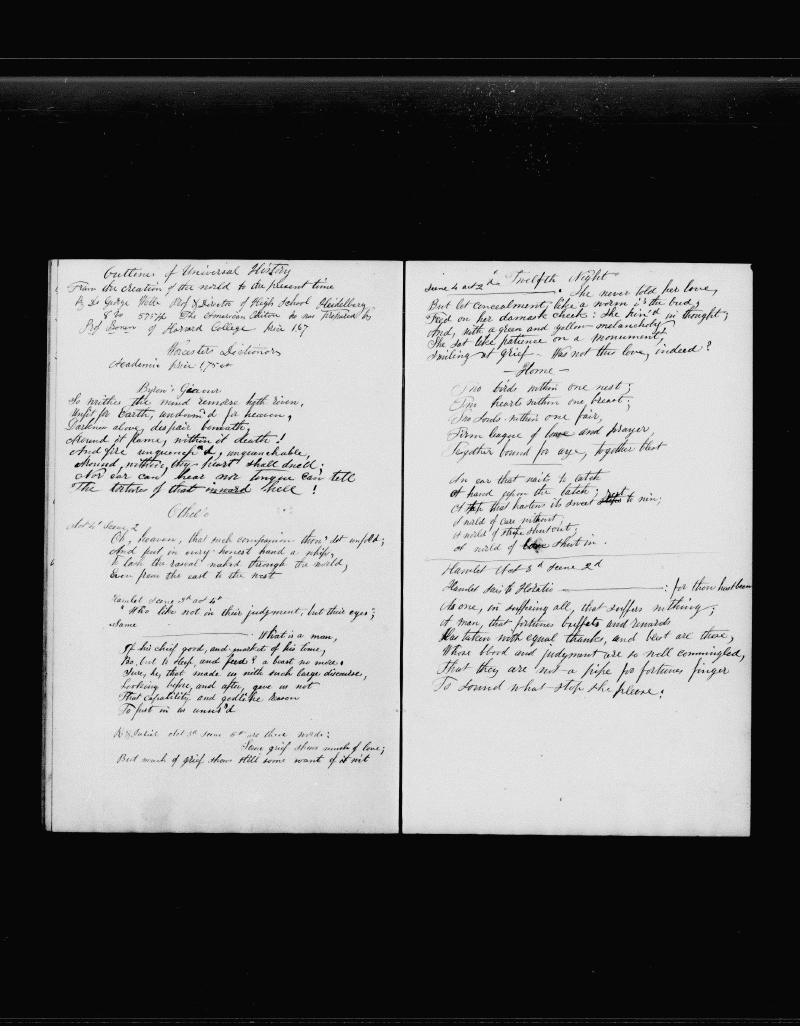 Outlines of Universal History
From the creation of the world to the present time
By Dr George Weber Prof & Director of High School Heidelberg
8 vo 575 pp The American Edition to was Prepared by
Prof Bowen of Harvard College price 167
Worcesters Dictionary
Academic price 1,75 cts
Byron's Giaour
So writhes the mind remorse hath riven,
Unfit for Earth, undoom'd for heaven,
Darkness above, despair beneath,
Around it flame, within it death!
And fire unquench'd, unquenchable,
Around, within, thy heart shall dwell;
Nor ear can hear nor tongue can tell
The tortures of that inward hell!
Othelo
Act 4th Scene 2
Oh, heaven, that such companion thou'dst unfold;
And put in every honest hand a whip,
To lash the rascal naked through the world,
Even from the east to the west
Hamlet Scene 3d act 4th
"Who like not in their judgment, but their eyes;
Same
What is a man,
If his chief good, and market of his time,
Be, but to sleep, and feed? a beast no more.
Sure, he, that made us with such large discourse,
Looking before, and after, gave us not
That capability and godlike reason
To fust in us unus'd
R & Juliet Act 3d scene 5th are these words:
Some grief shows much of love;
But much of grief shows still some want of wit
Scene 4 act 2d Twelfth Night
She never told her love,
But let concealment, like a worm i' the bud,
Feed on her damask cheek: She pin'd in thought;
And, with a green and yellow melancholy,
She sat like patience on a monument,
Smiling at grief - Was not this love, indeed?
- Home -
Two birds within one nest;
Two hearts within one breast;
Two souls within one fair,
Firm league of love and prayer,
Together bound for aye, together blest
An ear that waits to catch
A hand upon the latch;
A step that hastens its sweet rest to win;
A world of care without,
A world of strife shut out;
A world of love shut in.
Hamlet Act 3d Scene 2d
Hamlet sais to Horatio : for thou hast been
As one, in suffering all, that suffers nothing;
A man, that fortunes buffets and rewards
Has taken with equal thanks, and blest are those,
Whose blood and judgment are so well commingled,
That they are not a pipe for fortunes finger
To sound what stop she please: